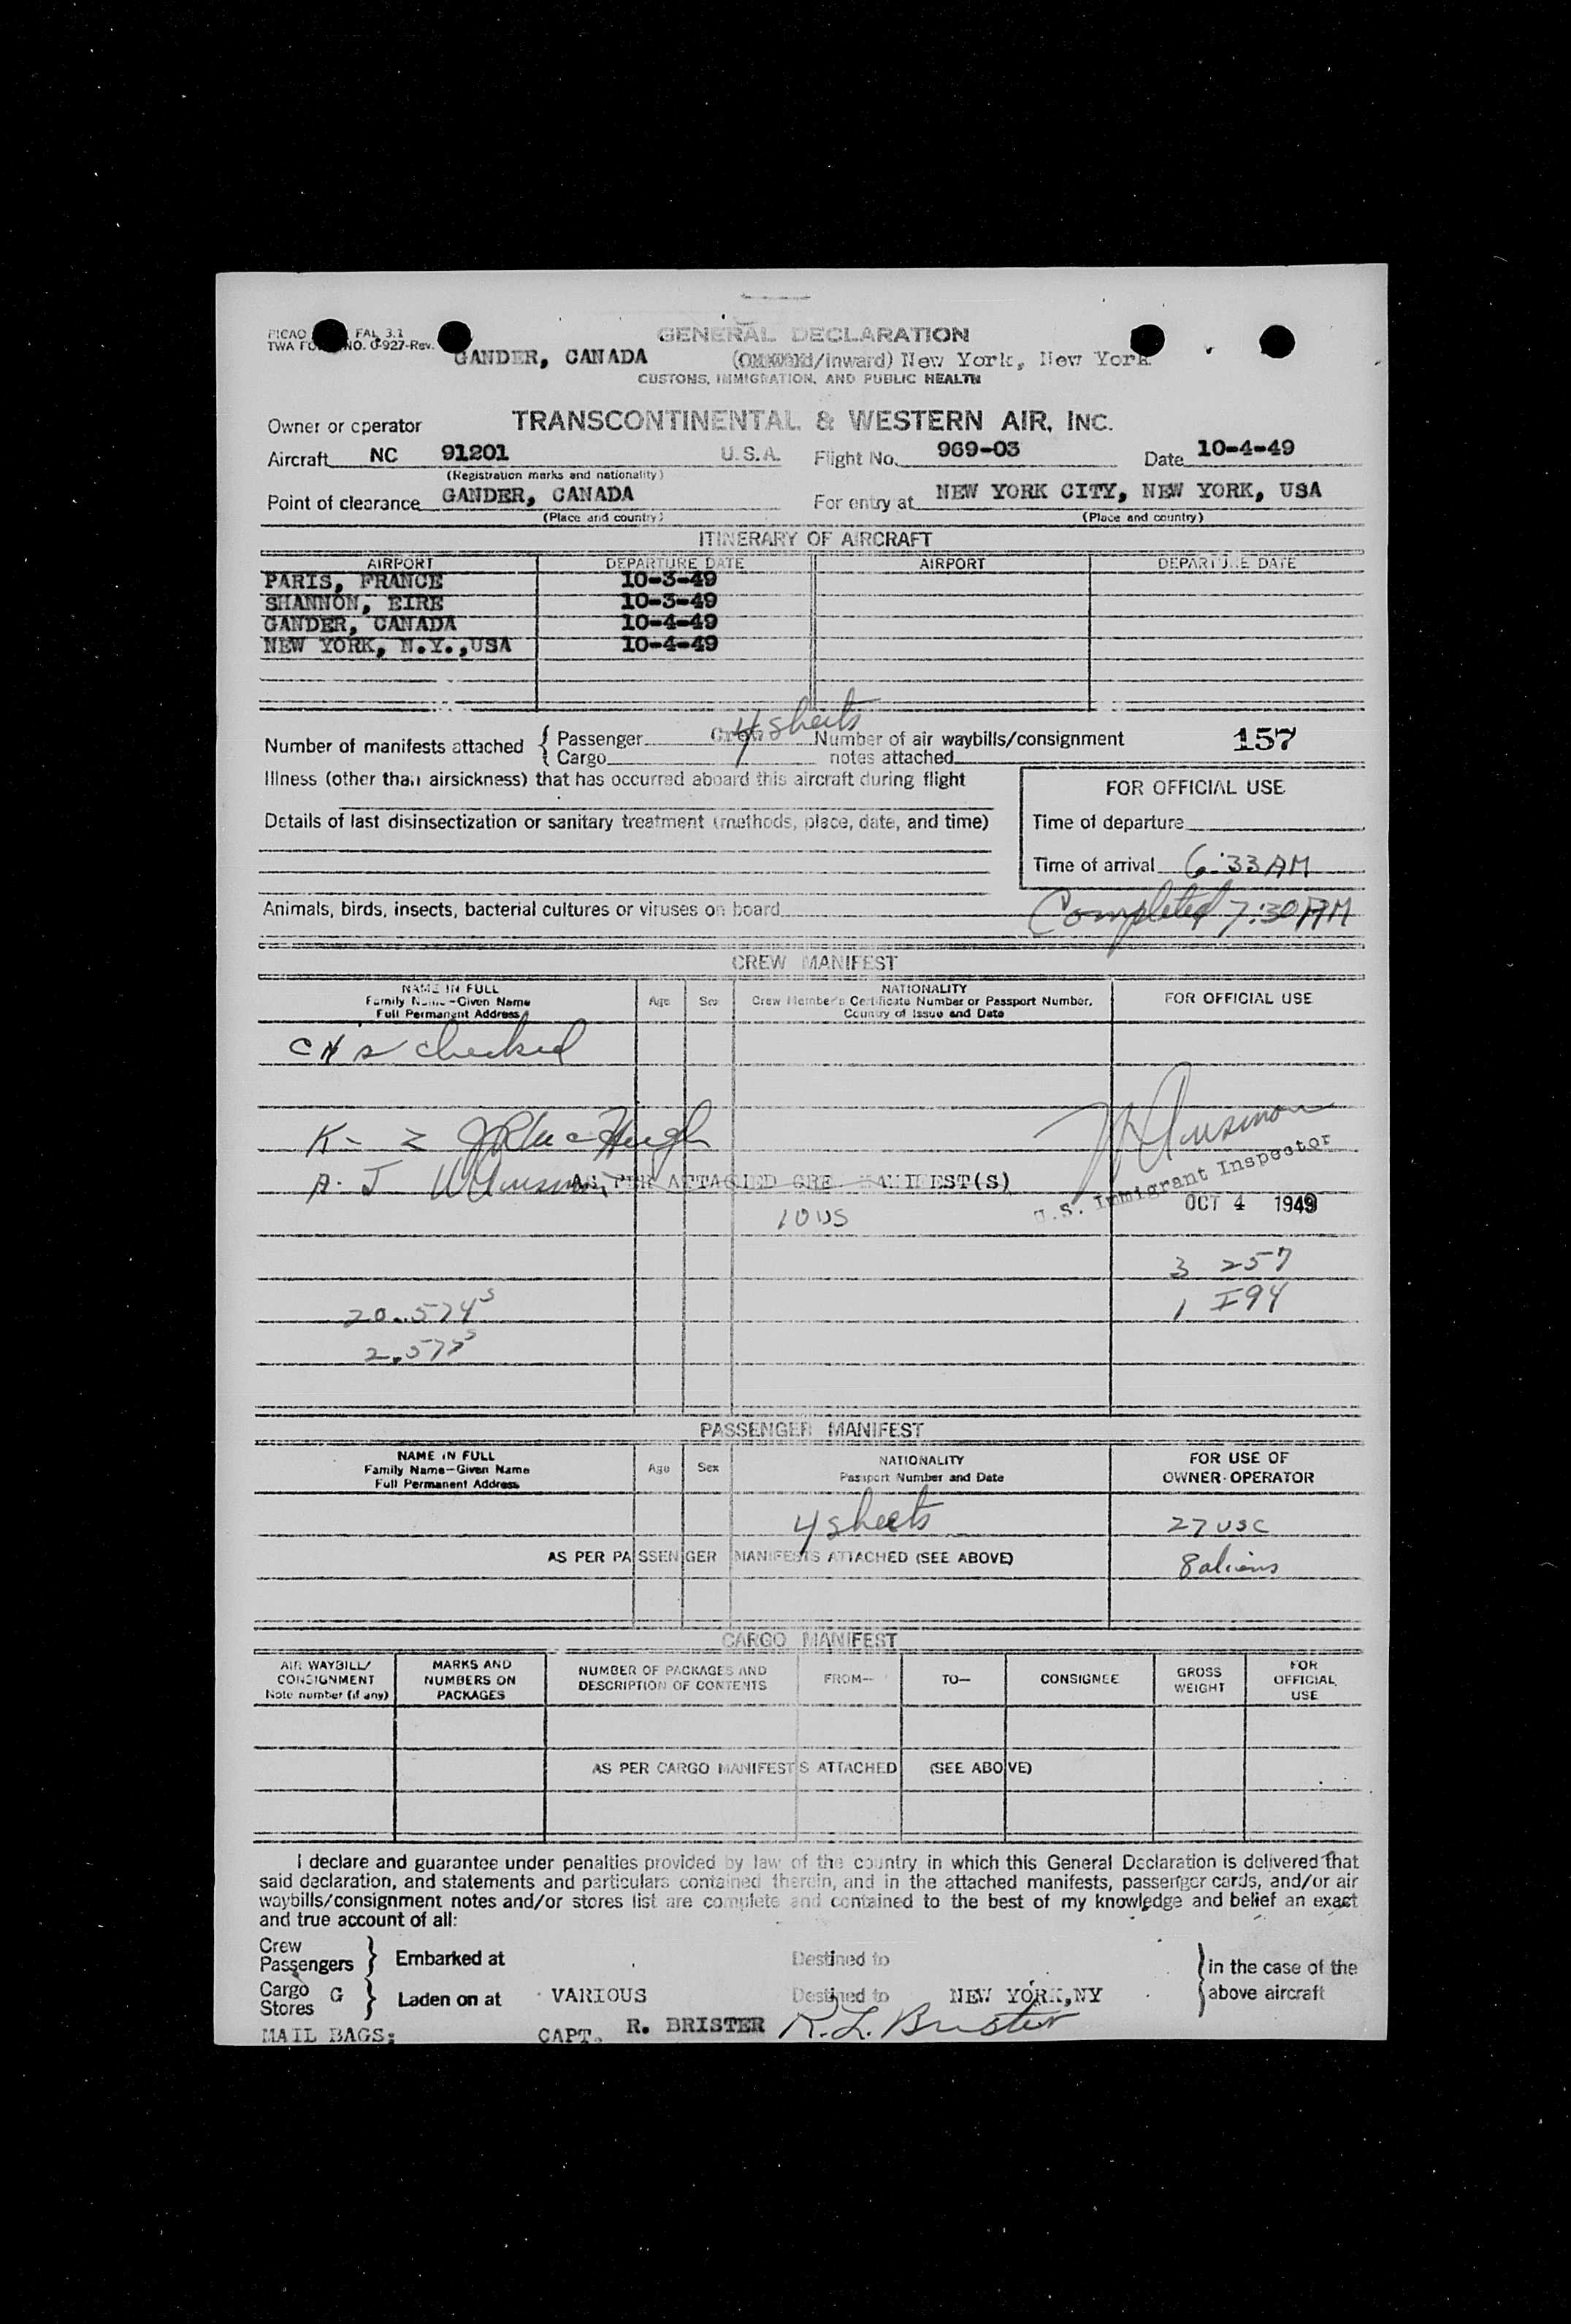 PICAO FAL 3.1
TWA NO. 0-927-Rev.
GENERAL DECLARATION
GANDER, CANADA (/Inward) New York, New York
CUSTOMS, IMMIGRATION, AND PUBLIC HEALTH
Owner or operator TRANSCONTINENTAL & WESTERN AIR, INC.
Aircraft NC 91201 U.S.A. Flight No. 969-03 Date 10-4-49
(Registration marks and nationality)
Point of clearance GANDER, CANADA For entry at NEW YORK CITY, NEW YORK, USA
(Place and country) (Place and country)
ITINERARY OF AIRCRAFT
AIRPORT DEPARTURE DATE AIRPORT DEPARTURE DATE
PARIS, FRANCE 10-3-49
SHANNON, EIRE 10-3-49
GANDER, CANADA 10-4-49
NEW YORK, N.Y.,USA 10-4-49
Number of manifests attached { Passenger 4 sheets Number of air waybills/consignment 157
{ Cargo notes attached
Illness (other than airsickness) that has occurred aboard this aircraft during flight
FOR OFFICIAL USE
Details of last disinsectization or sanitary treatment (methods, place, date, and time)
Time of departure
Time of arrival 6:33 AM
Animals, birds, insects, bacterial cultures or viruses on board
Completed 7:30 AM
CREW MANIFEST
NAME IN FULL
Family Name-Given Name
Full Permanent Address
Age Sex
NATIONALITY
Crew Member's Certificate Number or Passport Number,
Country of Issue and Date
FOR OFFICIAL USE
checked
K-
A. J
AS PER ATTACHED CREW MANIFEST(S)
U.S. Immigrant Inspector
OCT 4 1949
10 US
3 257
1 I94
20
2
PASSENGER MANIFEST
NAME IN FULL
Family Name-Given Name
Full Permanent Address
Age Sex
NATIONALITY
Passport Number and Date
FOR USE OF
OWNER-OPERATOR
4 sheets 27 USC
AS PER PASSENGER MANIFESTS ATTACHED (SEE ABOVE) 8 aliens
CARGO MANIFEST
AIR WAYBILL/
CONSIGNMENT
Note number (if any)
MARKS AND
NUMBERS ON
PACKAGES
NUMBER OF PACKAGES AND
DESCRIPTION OF CONTENTS
FROM—
TO—
CONSIGNEE
GROSS
WEIGHT
FOR
OFFICIAL
USE
AS PER CARGO MANIFESTS ATTACHED (SEE ABOVE)
I declare and guarantee under penalties provided by law of the country in which this General Declaration is delivered that
said declaration, and statements and particulars contained therein, and in the attached manifests, passenger cards, and/or air
waybills/consignment notes and/or stores list are complete and contained to the best of my knowledge and belief an exact
and true account of all:
Crew
Passengers } Embarked at Destined to } in the case of the
Cargo G
Stores } Laden on at VARIOUS Destined to NEW YORK,NY above aircraft
MAIL BAGS: CAPT. R. BRISTER R. L. Brister